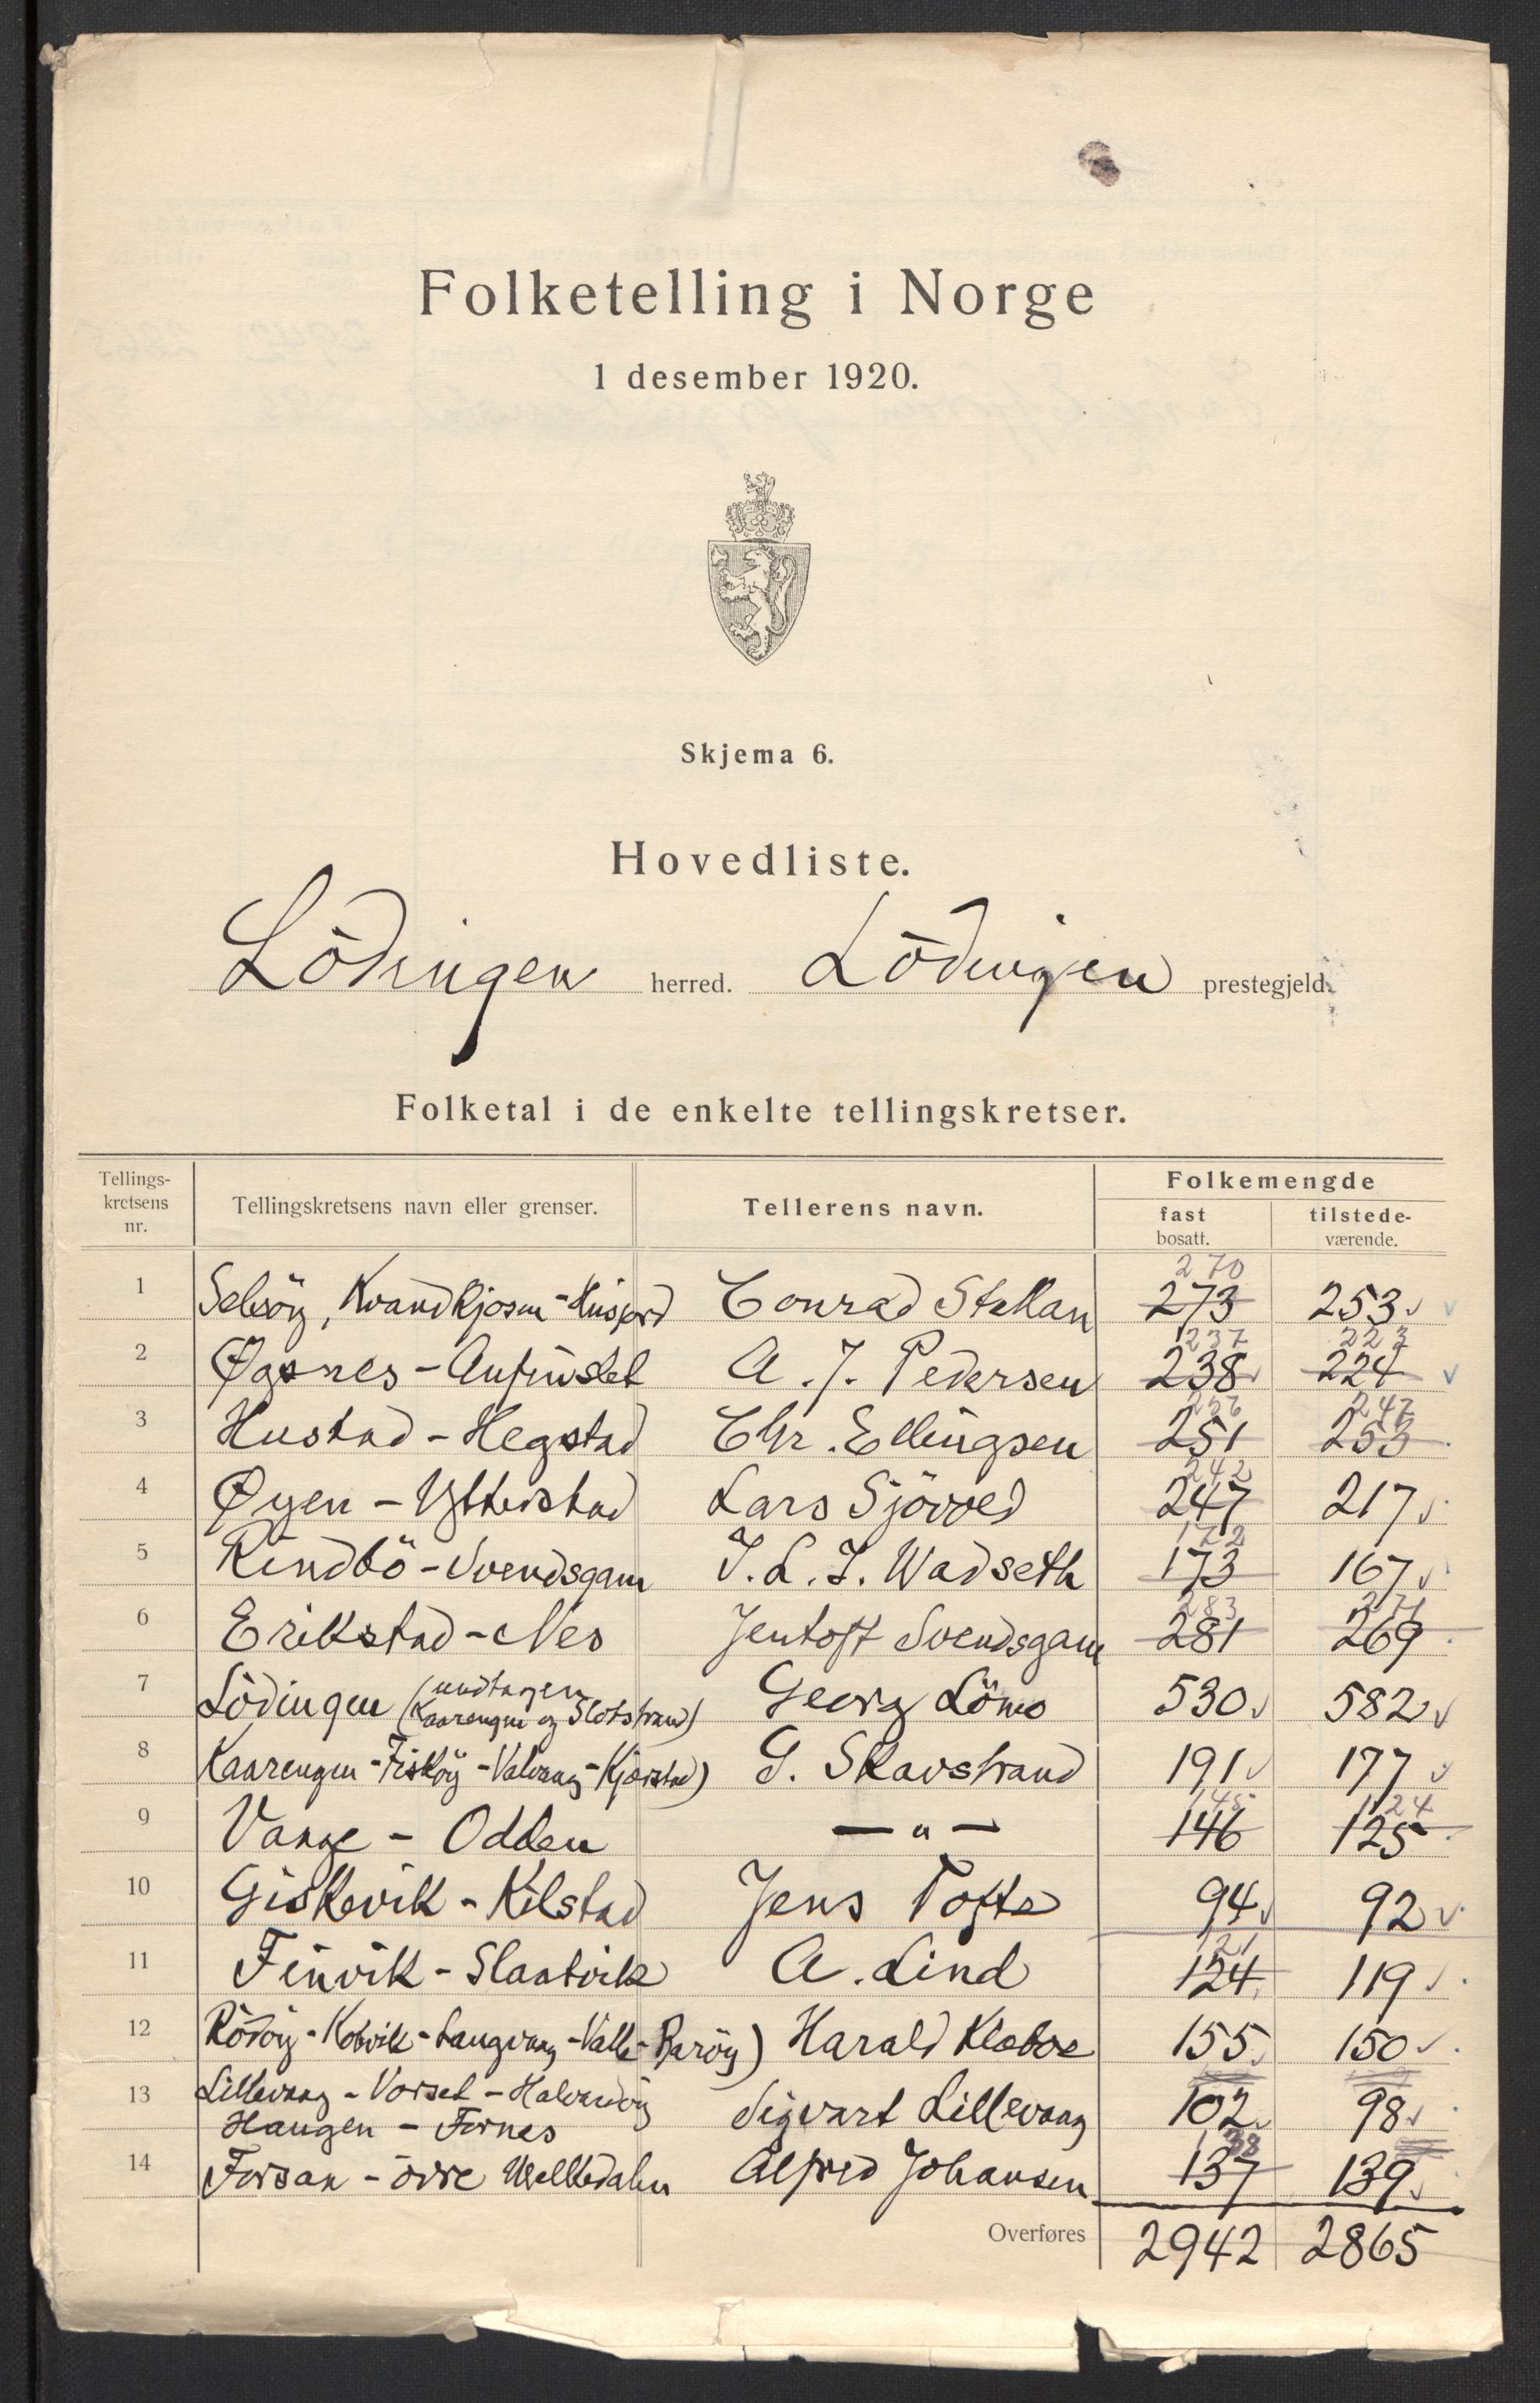 Folketelling i Norge
1 desember 1920.
Skjema 6.
Hovedliste.
Lödingen herred. Lödingen prestegjeld.
Folketal i de enkelte tellingskretser.
Tellings-kretsens nr. Tellingskretsens navn eller grenser. Tellerens navn. Folkemengde
fast bosatt. tilstede-værende.
270
1 Selsöy, Kvandkjosen - Husjord Conrad Stellan 273 253
237 223
2 Øgsnes - Anfinslet A. J. Pedersen 238 224
256 247
3 Hustad - Hegstad Chr. Ellingsen 251 253
242
4 Øyen - Ytterstad Lars Sjövold 247 217
172
5 Rendbö - Svendsgam J. L. J. Wadseth 173 167
283 271
6 Erikstad - Nes Jentoft Svendsgam 281 269
7 Lödingen (undtagen Kaarengen og Slotstrand) Georg Lömo 530 582
8 Kaarengen - Fisköy - Valvaag - Kjørstad) G. Skavstrand 191 177
145 124
9 Vange - Odden — " — 146 125
10 Giskevik - Kilstad Jens Tofte 94 92
121
11 Finvik - Slaatvik A. Lind 124 119
12 Rödöy - Kobvik - Langvaag - Valle - Baröy) Harald Klæboe 155 150
13 Lillevaag - Vorset - Halvardöy
Haugen - Fornes Sigvart Lillevaag 102 98
38
14 Forsan - övre Alfred Johansen 137 139
Overføres 2942 2865